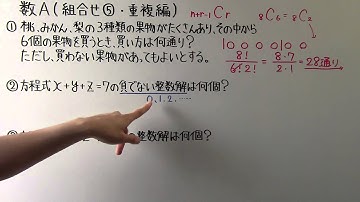 数A(組合せ⑤・重複編)
n+r-1Cr 8C6=8C2
①桃、みかん、梨の3種類の果物がたくさんあり、その中から
6個の果物を買うとき、買い方は何通り?
ただし、買わない果物があってもよいとする。
10 0 0 0 1 0 0
8!/6!2! = 8・7/2・1 = 28通り
②方程式x+y+z=7の負でない整数解は何個?
0、1、2、……
整数解は何個?